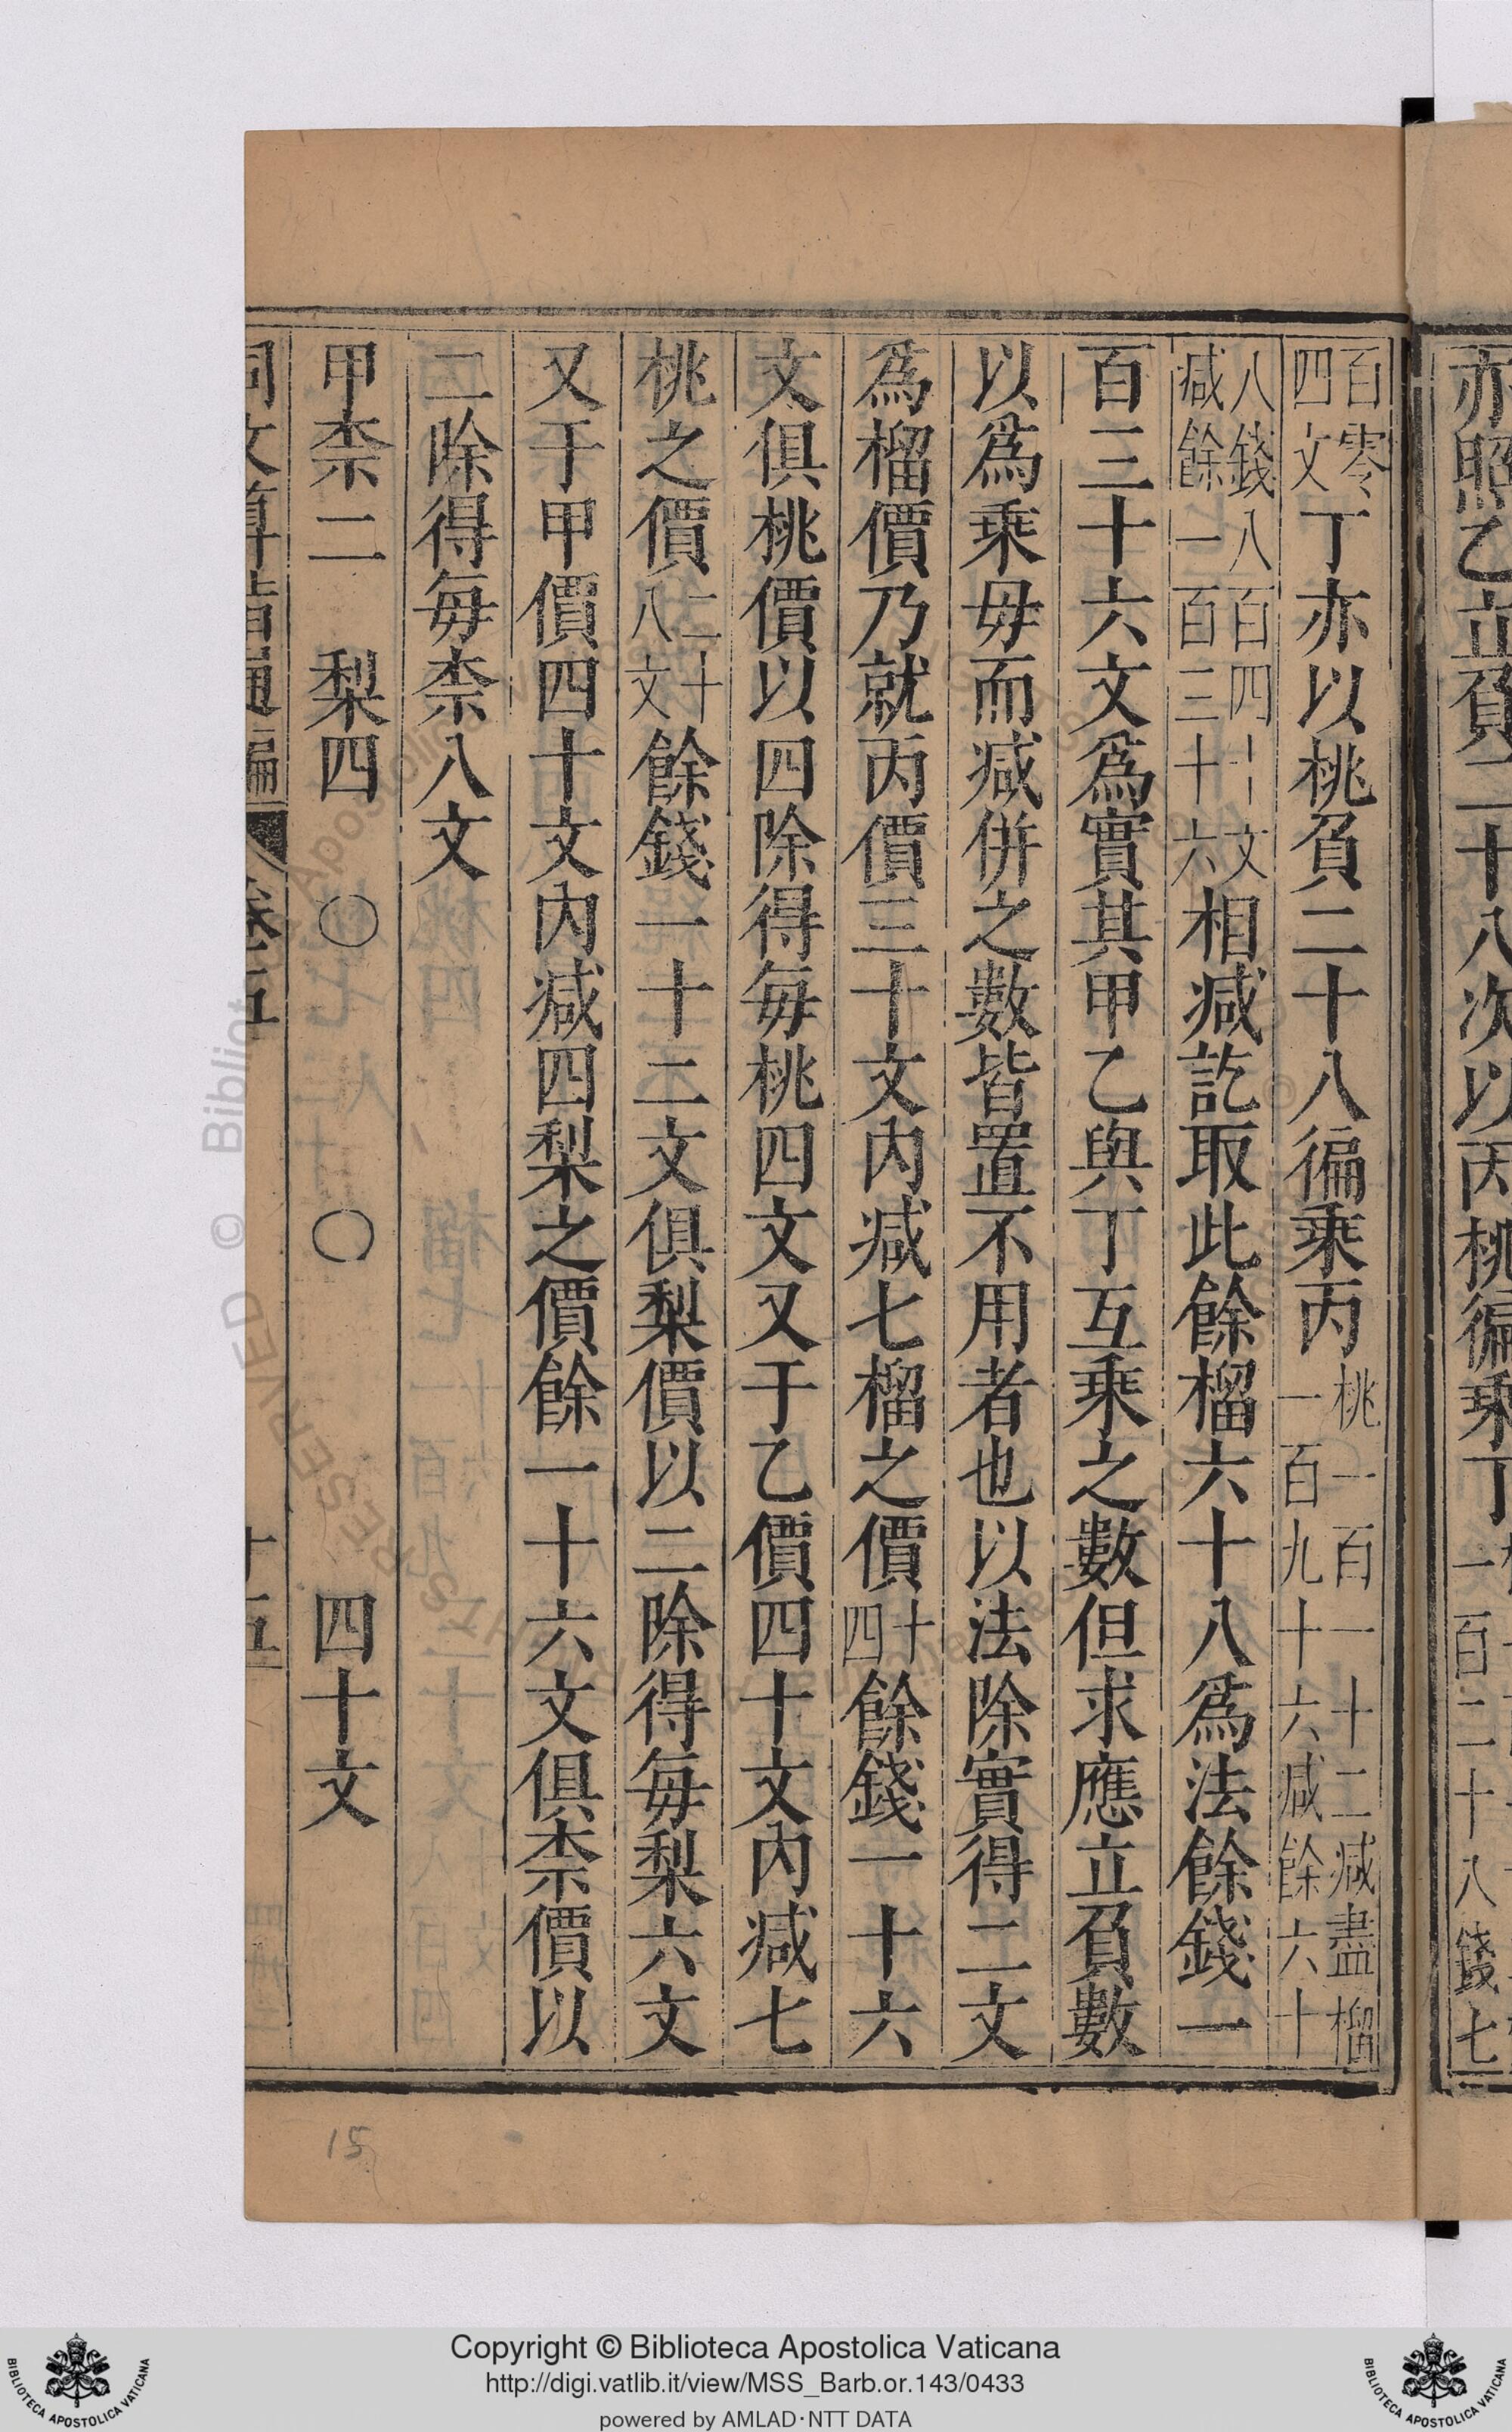 亦照乙立負二十八次以丙桃徧乘丁
一百二十八錢七
百零
四文
丁亦以桃負二十八徧乘丙
桃一百一十二减盡榴
一百九十六减餘六十
八錢八百四十文
减餘一百三十六
相减訖取此餘榴六十八爲法餘錢一
百三十六文爲實其甲乙與丁互乘之數但求應立負數
以爲乘毋而减併之數皆置不用者也以法除實得二文
爲榴價乃就丙價三十文內减七榴之價
十
四
餘錢一十六
文俱桃價以四除得每桃四文又于乙價四十文內减七
桃之價
二十
八文
餘錢一十二文俱梨價以二除得每梨六文
又于甲價四十文內减四梨之價餘一十六文俱柰價以
二除得每柰八文
甲柰二 梨四 〇 〇 四十文
同文算指通編 卷五 十五
15
© Biblioteca Apostolica Vaticana
Copyright © Biblioteca Apostolica Vaticana
http://digi.vatlib.it/view/MSS_Barb.or.143/0433
powered by AMLAD·NTT DATA
BIBLIOTECA APOSTOLICA VATICANA
BIBLIOTECA APOSTOLICA VATICANA